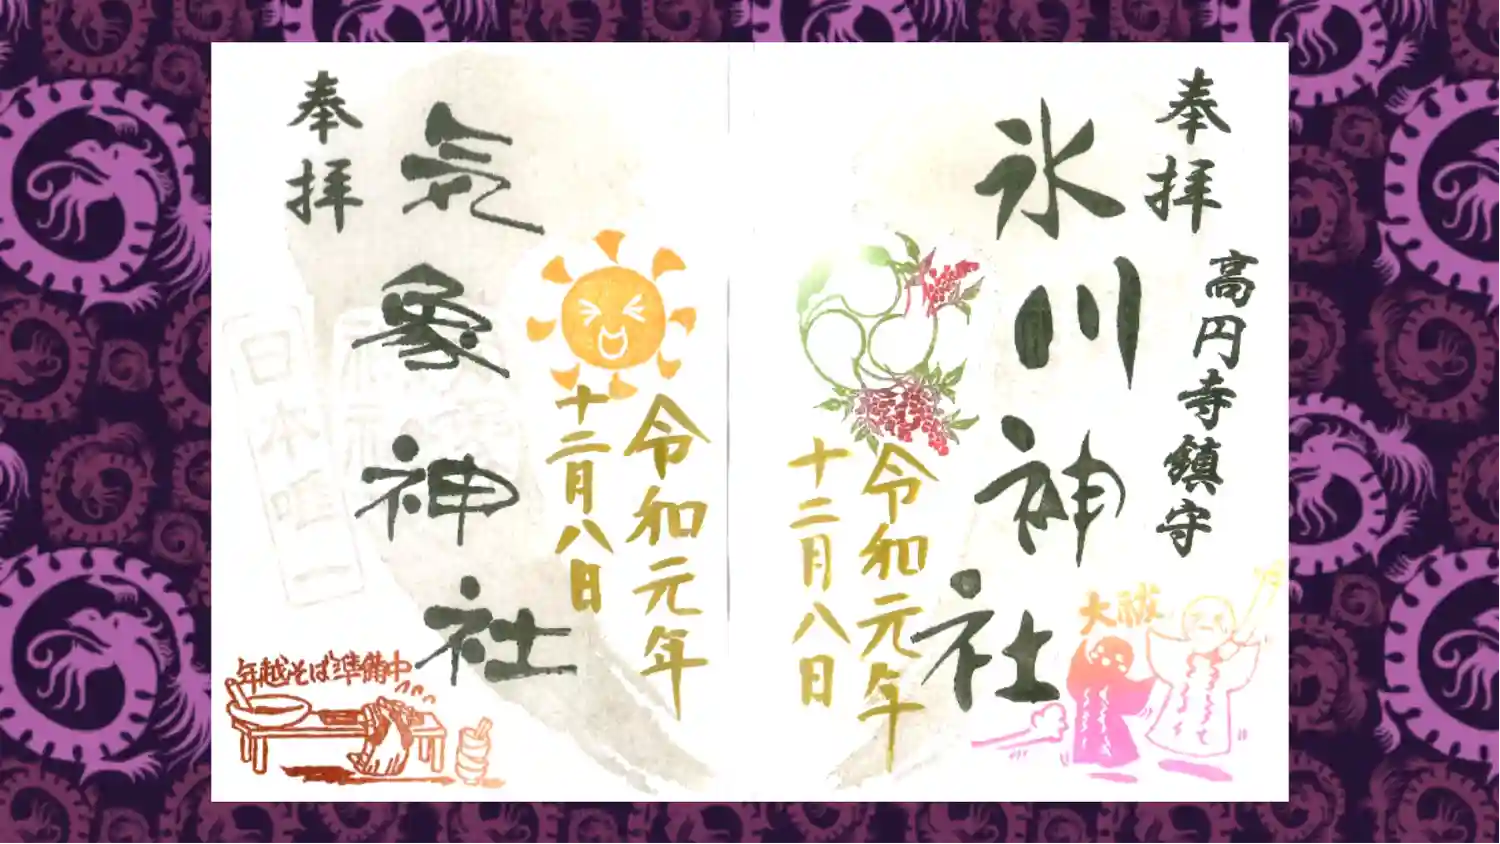 奉拝
高円寺鎮守
氷川神社
令和元年
十二月八日
大祓
令和元年
十二月八日
気象神社
奉拝
日本唯一
年越そば準備中